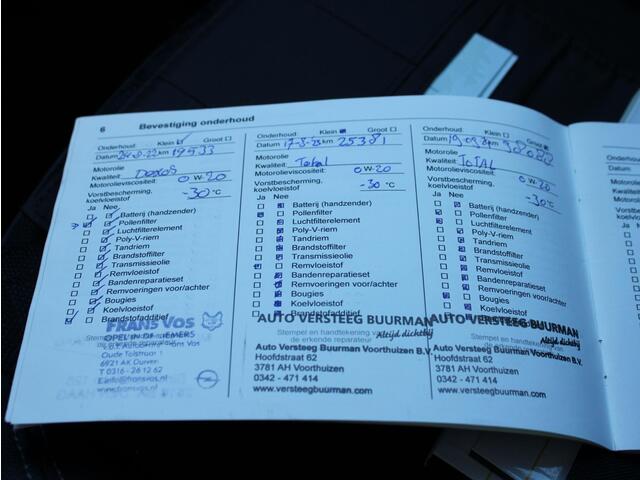 6 Bevestiging onderhoud
Onderhoud: Klein Groot
Datum 24-8-22 km 19533
Motorolie
Kwaliteit Dexos
Motorolieviscositeit: 0 W-20
Vorstbescherming, koelvloeistof -30 °C
Ja Nee
Batterij (handzender)
Pollenfilter
Luchtfilterelement
Poly-V-riem
Tandriem
Brandstoffilter
Transmissieolie
Remvloeistof
Bandenreparatieset
Remvoeringen voor/achter
Bougies
Koelvloeistof
Brandstofadditief
FRANS VOS
OPEL
Oude Tolstraat 1
6921 AK Duiven
T 0316 - 26 12 62
www.fransvos.nl
Onderhoud: Klein Groot
Datum 17-8-23 km 25381
Motorolie
Kwaliteit: Total
Motorolieviscositeit: 0 W-20
Vorstbescherming,
koelvloeistof -30 °C
Ja Nee
Batterij (handzender)
Pollenfilter
Luchtfilterelement
Poly-V-riem
Tandriem
Brandstoffilter
Transmissieolie
Remvloeistof
Bandenreparatieset
Remvoeringen voor/achter
Bougies
Koelvloeistof
Brandstofadditief
AUTO VERSTEEG BUURMAN
Stempel en handtekening van
de erkende reparateur
Altijd dichtbij
Auto Versteeg Buurman Voorthuizen B.V.
Hoofdstraat 62
3781 AH Voorthuizen
0342 - 471 414
www.versteegbuurman.com
Onderhoud: Klein Groot
Datum km
Motorolie
Kwaliteit: TOTAL
Motorolieviscositeit: 0 W-20
Vorstbescherming,
koelvloeistof -30 °C
Ja Nee
Batterij (handzender)
Pollenfilter
Luchtfilterelement
Poly-V-riem
Tandriem
Brandstoffilter
Transmissieolie
Remvloeistof
Bandenreparatieset
Remvoeringen voor/achter
Bougies
Koelvloeistof
AUTO VERSTEEG BUURMAN
Altijd dichtbij
Auto Versteeg Buurman Voorthuizen B.V.
Hoofdstraat 62
3781 AH Voorthuizen
0342 - 471 414
www.versteegbuurman.com